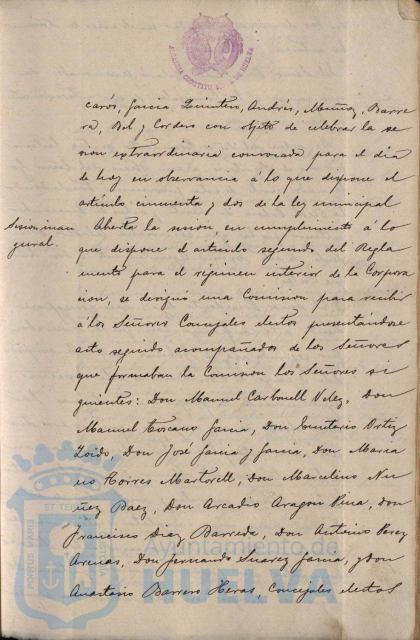 ALCALDIA CONSTITUCIONAL DE HUELVA
carós, Garcia Quintero, Andrés, Muñoz, Barre
ra, Bel y Cordero con objeto de celebrar la se
sion extraordinaria convocada para el dia
de hoy en observancia á lo que dispone el
artículo cincuenta y dos de la ley municipal
Sesion inau
gural.
Abierta la sesion, en cumplimiento á lo
que dispone el artículo segundo del Regla
mento para el régimen interior de la Corpora
cion, se designó una Comision para recibir
á los Señores Concejales electos presentándose
acto seguido acompañados de los Señores
que formaban la Comision los Señores si
guientes: Don Manuel Carbonell Velez, Don
Manuel Toscano Garcia, Don Emeterio Ortiz
Toido, Don José Garcia y Garcia, Don Maria
no Torres Martorell, Don Marcelino Nu
ñez Baez, Don Arcadio Aragon Pina, Don
Francisco Diaz Barreda, Don Antonio Perez
Arenas, Don Fernando Suarez Garcia, y Don
Anastasio Barrero Heras, Concejales electos
PORTUS MARIS
ET TERRAE
Ayuntamiento de
HUELVA